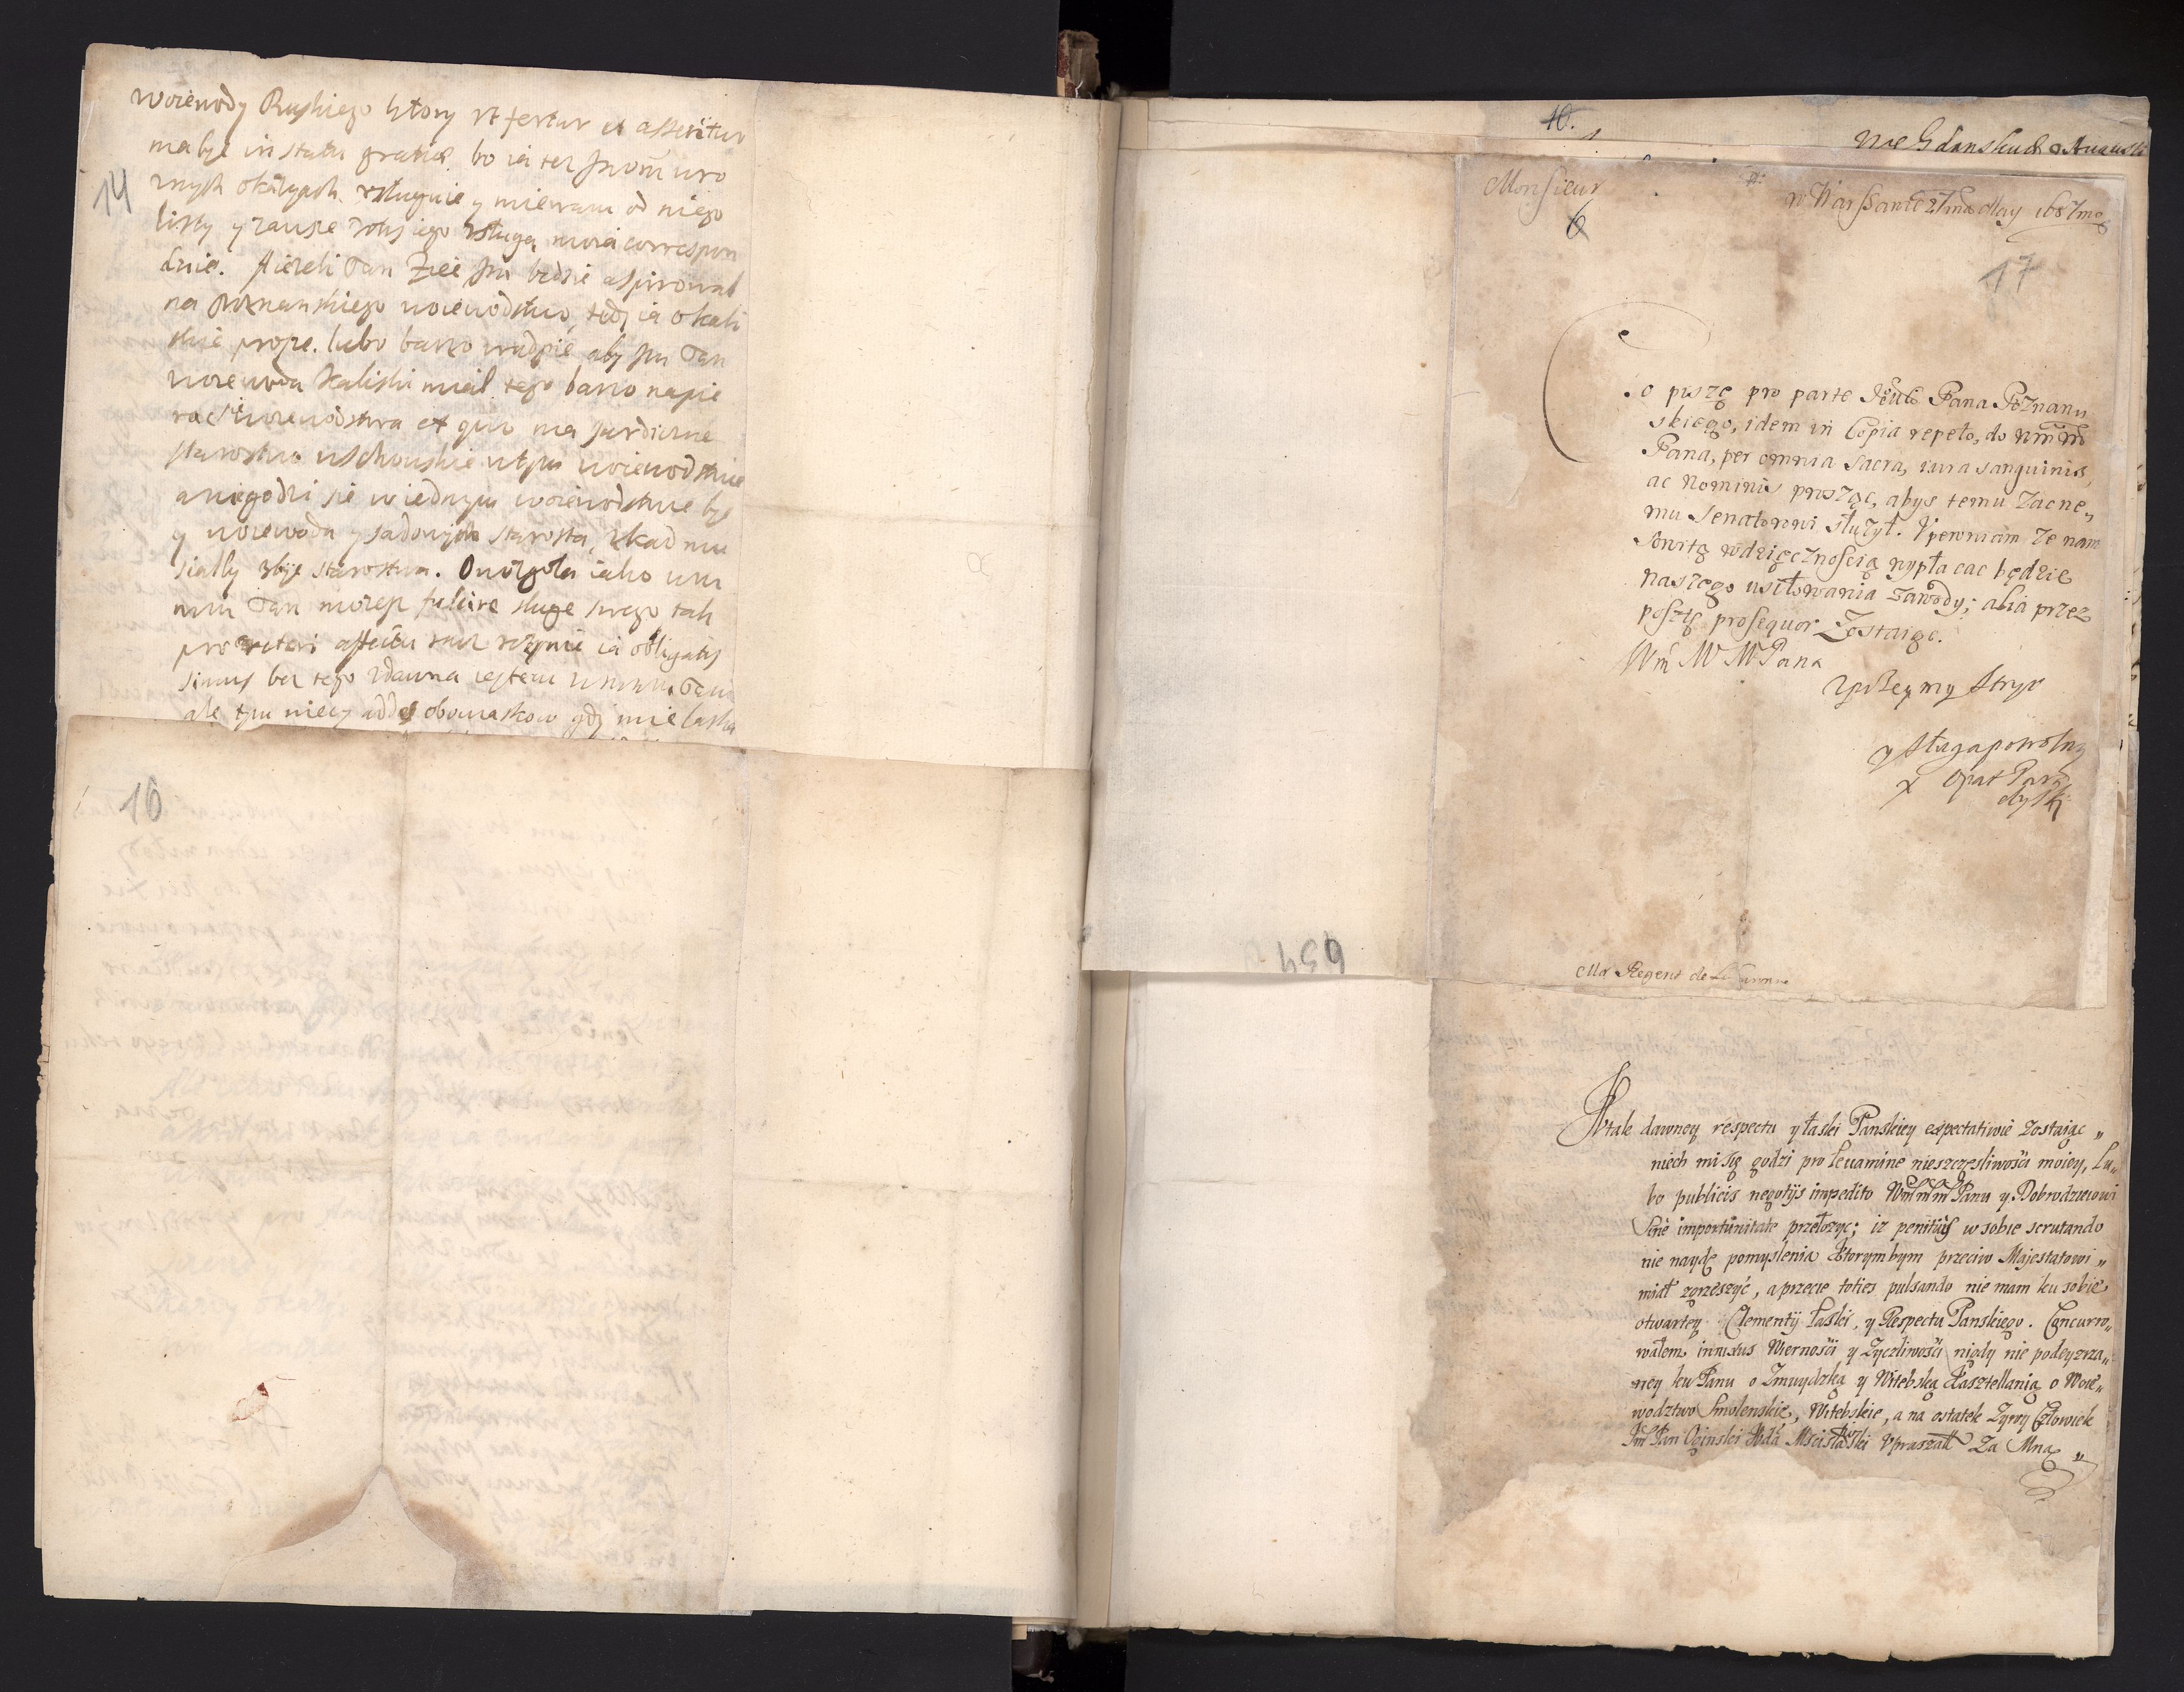 woiewody Ruskiego ktory vt fertur et asseritur
ma byc in statu gratiæ bo ia tez
14
znych okazyach vsluguie y miewam od niego
listy y zawsze usługą moią correspon
duie. Aiezeli Pan bedzie aspirowal
na Poznanskiego woiewodstwo, tedy ia o kali
skie prosze. lubo barzo wadpie aby Pan
woiewoda Kaliski mial tego barzo napie
rac woiewodstwa et quo ma
starostwo wschowskie w tym woiewodstwie
a niegodzi sie w iednym woiewodstwie byc
y woiewoda y sadowym starosta, zkad mu
sialby zbyc starostwa. Owo zgola iako
Pan mozesz sluge swego tak
affectu racz ia obligatis
simus bez tego zdawna iestem Pana
ale tym niecy addes obowiaskow gdy mie laska
16
10.
we Gdansku Augusti
Monsieur
6
w Warszawie 27ma May 1687mo
17
Co piszę pro parte Pana Poznanu
skiego, idem in Copia repeto, do
Pana, per omnia Sacra, iura sanguinis,
ac Nominis prosząc, abys temu Zacne„
mu Senatorowi służył. Upewniam ze nam
sowitą wdzięcznością wypłacac będzie
naszego usiłowania zawody; alia przez
posztę prosequor Zostaiąc.
Wm M M Pana
Uprzeymy Stryi
y sługa powolny
X Opat Para
dyski
654
Mr Regent de La
Wtak dawney respectu y łaski Panskiey expectatiwie zostaiąc„
niech mi się godzi pro levamine nieszczęsliwości moiey, Lu„
bo publicis negotijs impedito Panu y Dobrodzieiowi
sine importunitate przełozyc; iz penitus w sobie scrutando
nie naydę pomyslenia ktorymbym przeciw Majestatowi„
miał zgrzeszyć, a przecie toties pulsando nie mam ku sobie
otwartey Clementij Łaski, y Respectu Panskiego. Concurro„
wałem innixus Wiernosci y Zyczliwości nigdy nie podeyzrza„
ney ku Panu o Zmuydzką y Witebską Kasztellanią o Woie„
wodztwo Smolenskie, Witebskie, a na ostatek Zywy Człowiek
Jm Pan Oginski Wda Mscisławski Vpraszał Za Mną„